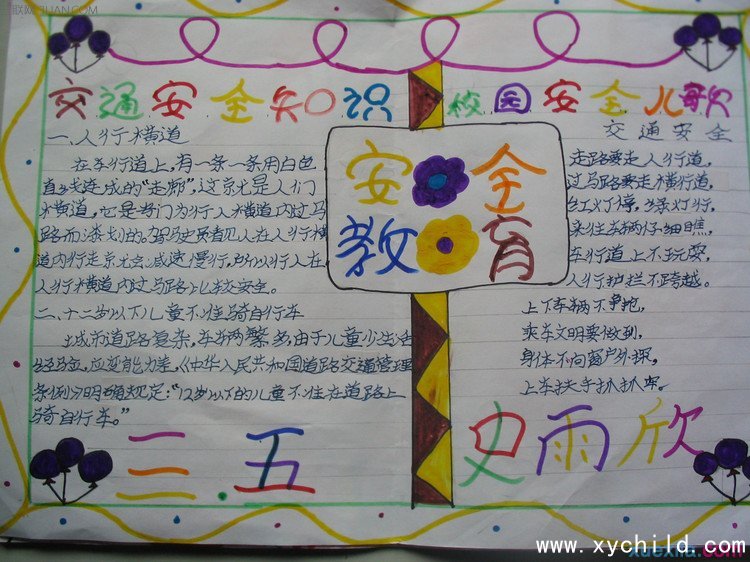 交通安全知识
一、人行横道
在车行道上，有一条一条用白色
直线连成的“走廊”，这就是人们
横道，它是专门为行人横道内过马
路而漆划的。驾驶员看见人在人行横
道内行走就会减速慢行，所以行人在
人行横道内过马路比较安全。
二、十二岁以下儿童不准骑自行车
城市道路复杂，车辆繁多，由于儿童少生活
经验，应变能力差，《中华人民共和国道路交通管理
条例》明确规定：“12岁以下的儿童不准在道路上
骑自行车。”
三.五
安全
教育
校园安全儿歌
交通安全
走路要走人行道，
过马路要走横行道，
红灯停，绿灯行，
来往车辆仔细瞧
车行道上不玩耍，
人行护拦不跨越。
上下车辆不争抢，
乘车文明要做到，
身体不向窗户外探，
上车扶手抓抓牢。
史雨欣
www.xychild.com